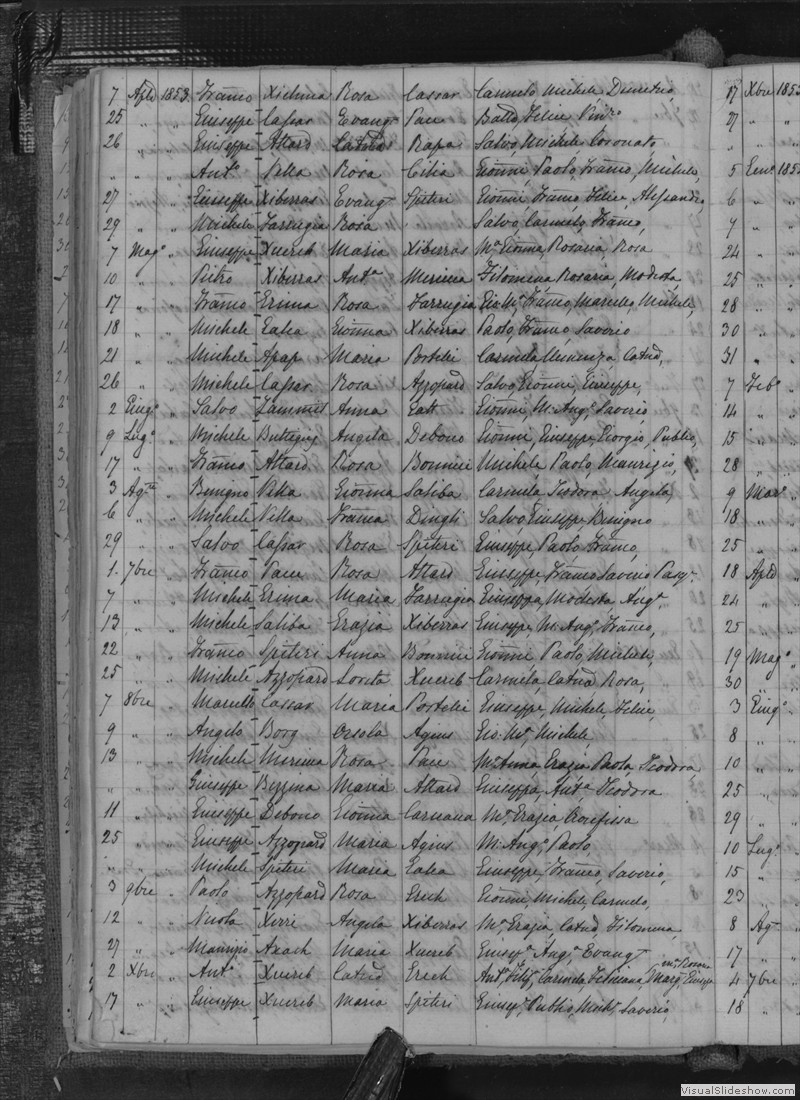 7 Aple 1853 Franco Xicluna Rosa Cassar Carmelo Michele Demetrio,
25 " " Giuseppe Cassar Evangta Pace Batta, Felice Pietro
26 " " Giuseppe Attard Catna Rapa Salvo, Michele Coronato
" " " Anto Vella Rosa Cilia Gionni, Paolo, Franco, Michele,
27 " " Giuseppe Xiberras Evangta Spiteri Gionni, Franco Felice, Alessandro,
29 " " Michele Farrugia Rosa Salvo, Carmelo, Franco,
7 Mago " Giuseppe Xuereb Maria Xiberras Ma Gionna, Rosaria, Rosa
10 " " Pietro Xiberras Anta Filomena, Rosaria, Modesta,
17 " " Franco Rosa Farrugia Gio Ma, Franco, Marcello, Michele,
18 " " Michele Galea Gionna Xiberras Paolo, Franco, Saverio
21 " " Michele Apap Maria Portelli Carmela Vincenza Catna,
26 " " Michele Cassar Rosa Azzopard Salvo, Gionni, Giuseppe,
2 Giugo " Salvo Zammit Anna Gatt Gionni, M. Anga, Saverio,
9 Lugo " Michele Buttigieg Angela Debono Gionni, Giuseppe, Giorgio, Publio,
17 " " Franco Attard Rosa Bonnici Michele Paolo, Maurizio,
3 Agto " Benigno Vella Gionna Saliba Carmela, Teodora Angela,
6 " " Michele Vella Franca Dingli Salvo Giuseppe, Benigno
29 " " Salvo Cassar Rosa Spiteri Giuseppe, Paolo, Franco,
1 7bre " Franco Pace Rosa Attard Giuseppe, Franco Saverio Pasq.
7 " " Michele Maria Farrugia Giuseppa, Modesta, Anga
13 " " Michele Saliba Grazia Xiberras Giuseppe, M. Anga, Franco,
22 " " Franco Spiteri Anna Bonnici Gionni, Paolo, Michele,
25 " " Michele Azzopard Loreta Xuereb Carmela, Catna, Rosa,
7 8bre " Marcello Cassar Maria Portelli Giuseppe, Michele, Felice,
9 " " Angelo Borg Orsola Agius Gio. Ma, Michele,
13 " " Michele Rosa Pace Ma Anna, Grazia Paola, Teodora,
" " " Giuseppe Bezzina Maria Attard Giuseppa, Anta Teodora
11 " " Giuseppe Debono Gionna Caruana Ma Grazia, Crocifissa
25 " " Giuseppe Azzopard Maria Agius M. Anga, Paolo,
" " " Michele Spiteri Maria Galea Giuseppe, Franco, Saverio,
3 9bre " Paolo Azzopard Rosa Grech Gionni, Michele, Carmelo,
12 " " Nicola Xerri Angela Xiberras Ma Grazia, Catna, Filomena,
27 " " Maurizio Axach Maria Xuereb Giusepa, Anga, Evangta
2 Xbre " Anto Xuereb Catna Grech Carmela, Feliciana,
17 " " Giuseppe Xuereb Maria Spiteri Giuse, Publio, Saverio,
17 Xbre 1853
27 "
" "
5 Geno 185
6 "
7 "
24 "
25 "
28 "
30 "
31 "
7 Febo
14 "
15 "
28 "
9 Marzo
18 "
25 "
18 Aple
24 "
25 "
19 Mago
30 "
3 Giugo
8 "
10 "
25 "
29 "
10 Lugo
15 "
23 "
8 Ago
17 "
4 7bre
18 "
VisualSlideshow.com